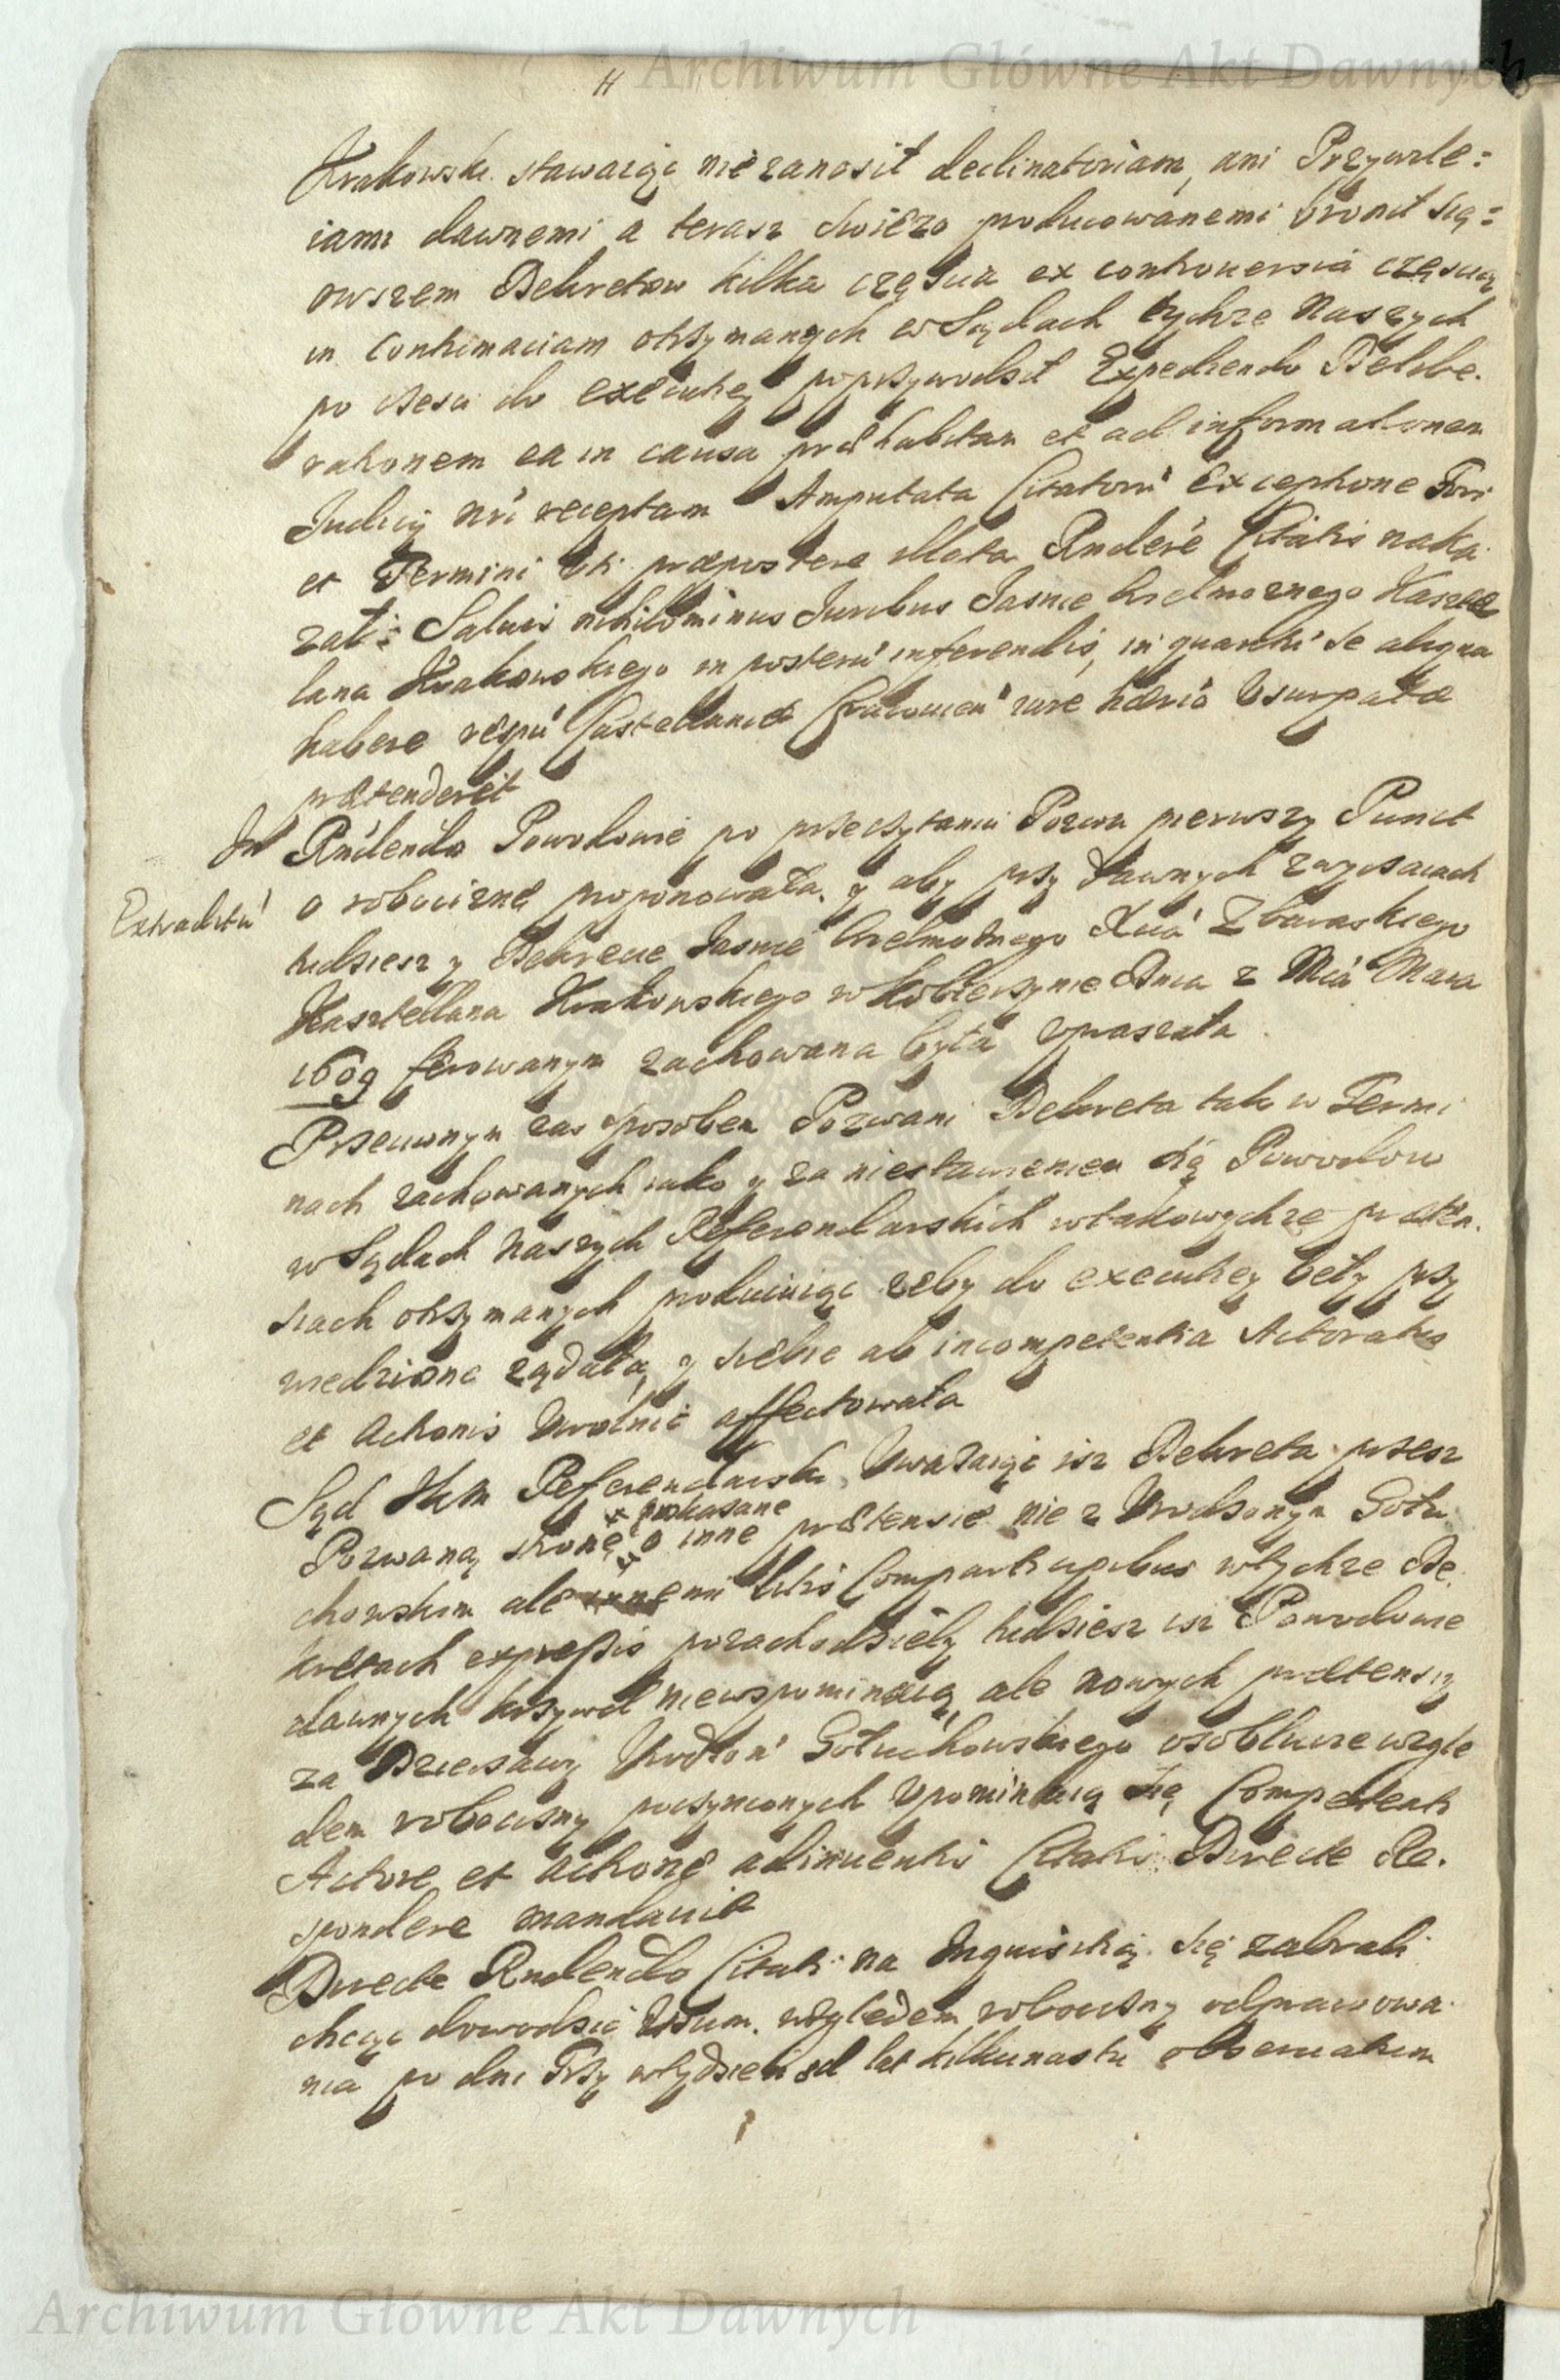 Archiwum Główne Akt Dawnych
Krakowski stawaiąc nie zanosił declinatoriam, ani Przywile:
iami dawnemi a terasz swiezo producowanemi bronił się:
owszem Dekretow kilka częscia ex controuersia częscią
in Contumaciam otrzymanych w Sądach tychze Naszych
po częsci do execucyey poprzywodził Expediendo Delibe.
rationem ea in causa præhabitam et ad informationem
Judicij nri receptam Amputata Citatorū Exceptione Fori
et Termini uti præpostere illata Rndere Citatis naka
zał: Saluis nihilominus Juribus Jasnie Wielmoznego Kasztel
lana Krakowskiego in posterū inferendis, in quantū se aliqua
habere respū Castellaniæ Cracouien iure hærio Usurpata
prætenderet
In Rndendo Powodowie po przeczytaniu Pozwu pierwszy Punct
Extraditū
o robociznę proponowała, y aby przy dawnych zwyczaiach
tudziesz y Dekrecie Jasnie Wielmoznego Xcia Zbaraskiego
Kasztellana Krakowskiego w Kobierzynie Dnia 2 Mca Maia
1609 ferowanym zachowana była vpraszała
Przeciwnym zas sposobem Pozwani Dekreta tak w Termi
nach zachowanych iako y za niestawieniem się Powodow
w Sądach Naszych Referendarskich w takowychze præten.
siach otrzymanych producuiąc zeby do execucyey beły przy
wiedzione ządała, y siebie ab incompetentia Actoratus
et Actionis Uwolnic affectowała
Sąd Nasz Referendarski Uwazaiąc isz Dekreta przesz
pokasane
Pozwaną stronę o inne prætensie nie z Urodzonym Gołu
chowskim ale innemi litis Compartitcipibus w tychze De
kretach expressis pozachodzieły tudziesz isz Powodowie
dawnych krzywd niewspominaią, ale nowych prætensiy
za Dzierzawy Urodzon Gołuchowskiego osobliwie wzglę
dem robocizny poczynionych Upominaią się Competenti
Actore et Actione adinuentis Citatis Directe Re.
spondere mandauit
Directe Rndendo Citati na Inquisitią się zabrali
chcąc dowodzic Usum, względem robocizny odprawowa
nia po dni Trzy w tydzien od lat kilkunastu obseruatum
Archiwum Główne Akt Dawnych